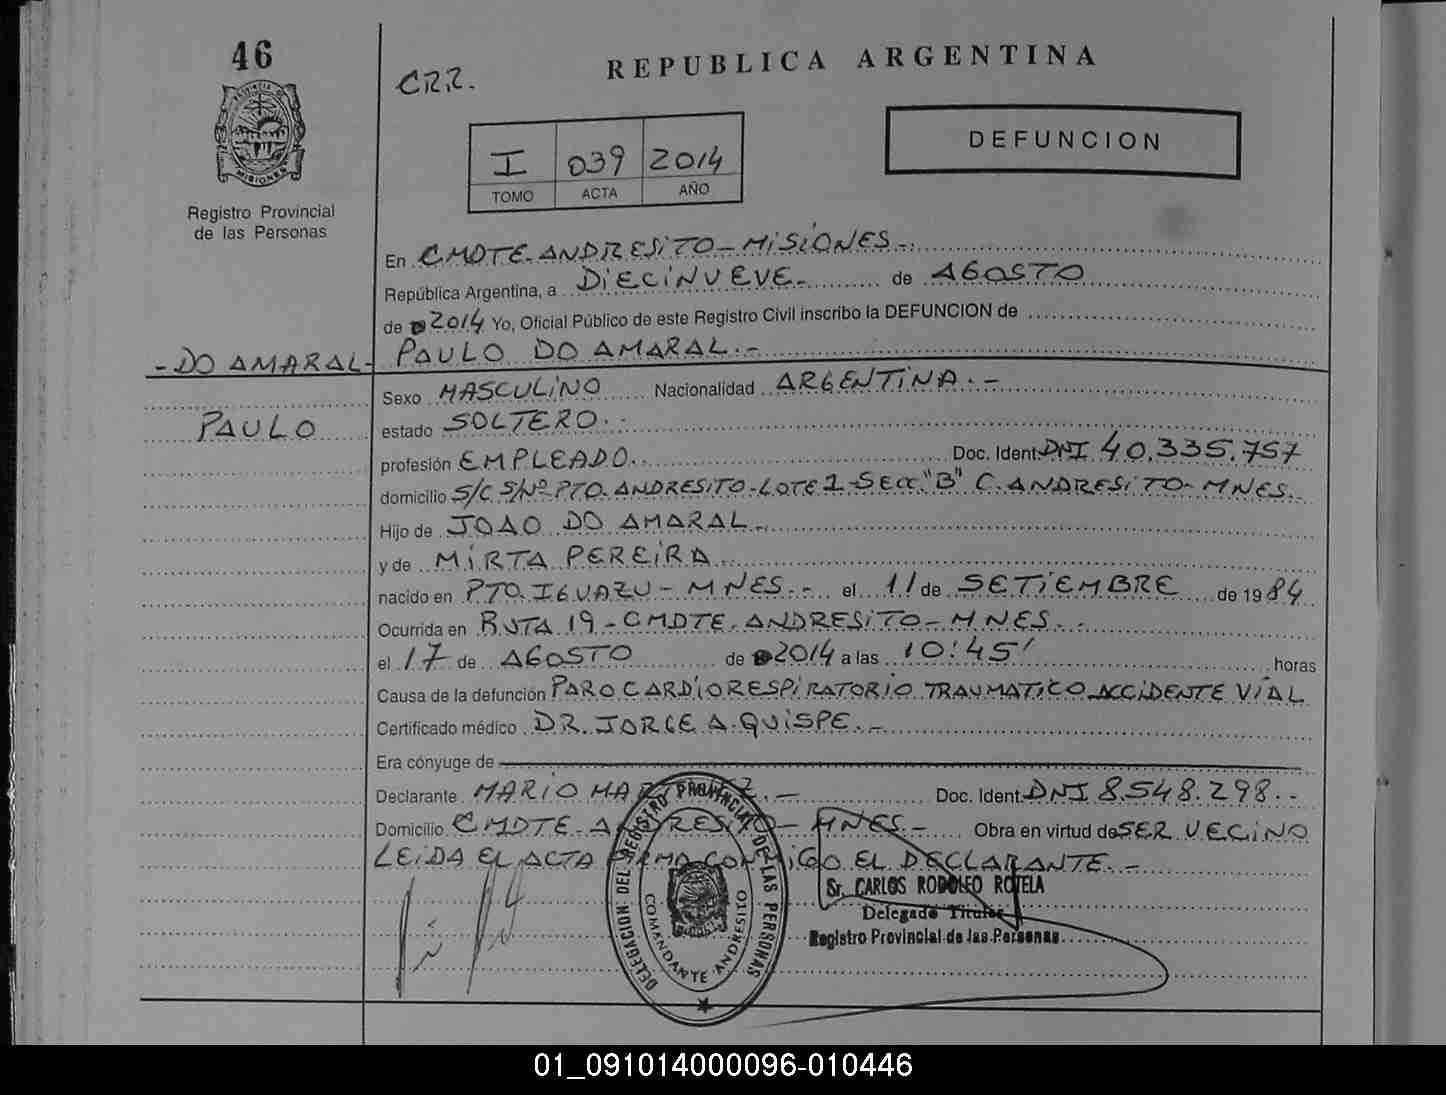 46
PROVINCIA DE
MISIONES
Registro Provincial
de las Personas
CRR.
REPUBLICA ARGENTINA
I 039 2014
TOMO ACTA AÑO
DEFUNCION
En CMDTE. ANDRESITO - MISIONES -.
República Argentina, a DIECINUEVE - de AGOSTO
de 2014 Yo, Oficial Público de este Registro Civil inscribo la DEFUNCION de
- DO AMARAL - PAULO DO AMARAL. -
Sexo MASCULINO Nacionalidad ARGENTINA. -
PAULO
estado SOLTERO. -
profesión EMPLEADO. Doc. Ident. DNI 40.335.757
domicilio S/C S/Nº PTO. ANDRESITO - LOTE 1 - SECC. "B" C. ANDRESITO - MNES.
Hijo de JOAO DO AMARAL -
y de MIRTA PEREIRA
nacido en PTO. IGUAZU - MNES. - el 11 de SETIEMBRE de 1984
Ocurrida en RUTA 19 - CMDTE. ANDRESITO - MNES. -
el 17 de AGOSTO de 2014 a las 10:45' horas
Causa de la defunción PARO CARDIORESPIRATORIO TRAUMATICO ACCIDENTE VIAL
Certificado médico DR. JORGE A. QUISPE. -
Era cónyuge de
Declarante MARIO Doc. Ident. DNI 8.548.298. -
Domicilio CMDTE. ANDRESITO - MNES - Obra en virtud de SER VECINO
LEIDA EL ACTA FIRMA CONMIGO EL DECLARANTE. -
DELEGACION DEL REGISTRO PROVINCIAL DE LAS PERSONAS
COMANDANTE ANDRESITO
Sr. CARLOS RODOLFO ROTELA
Delegado Titular
Registro Provincial de las Personas
01_091014000096-010446